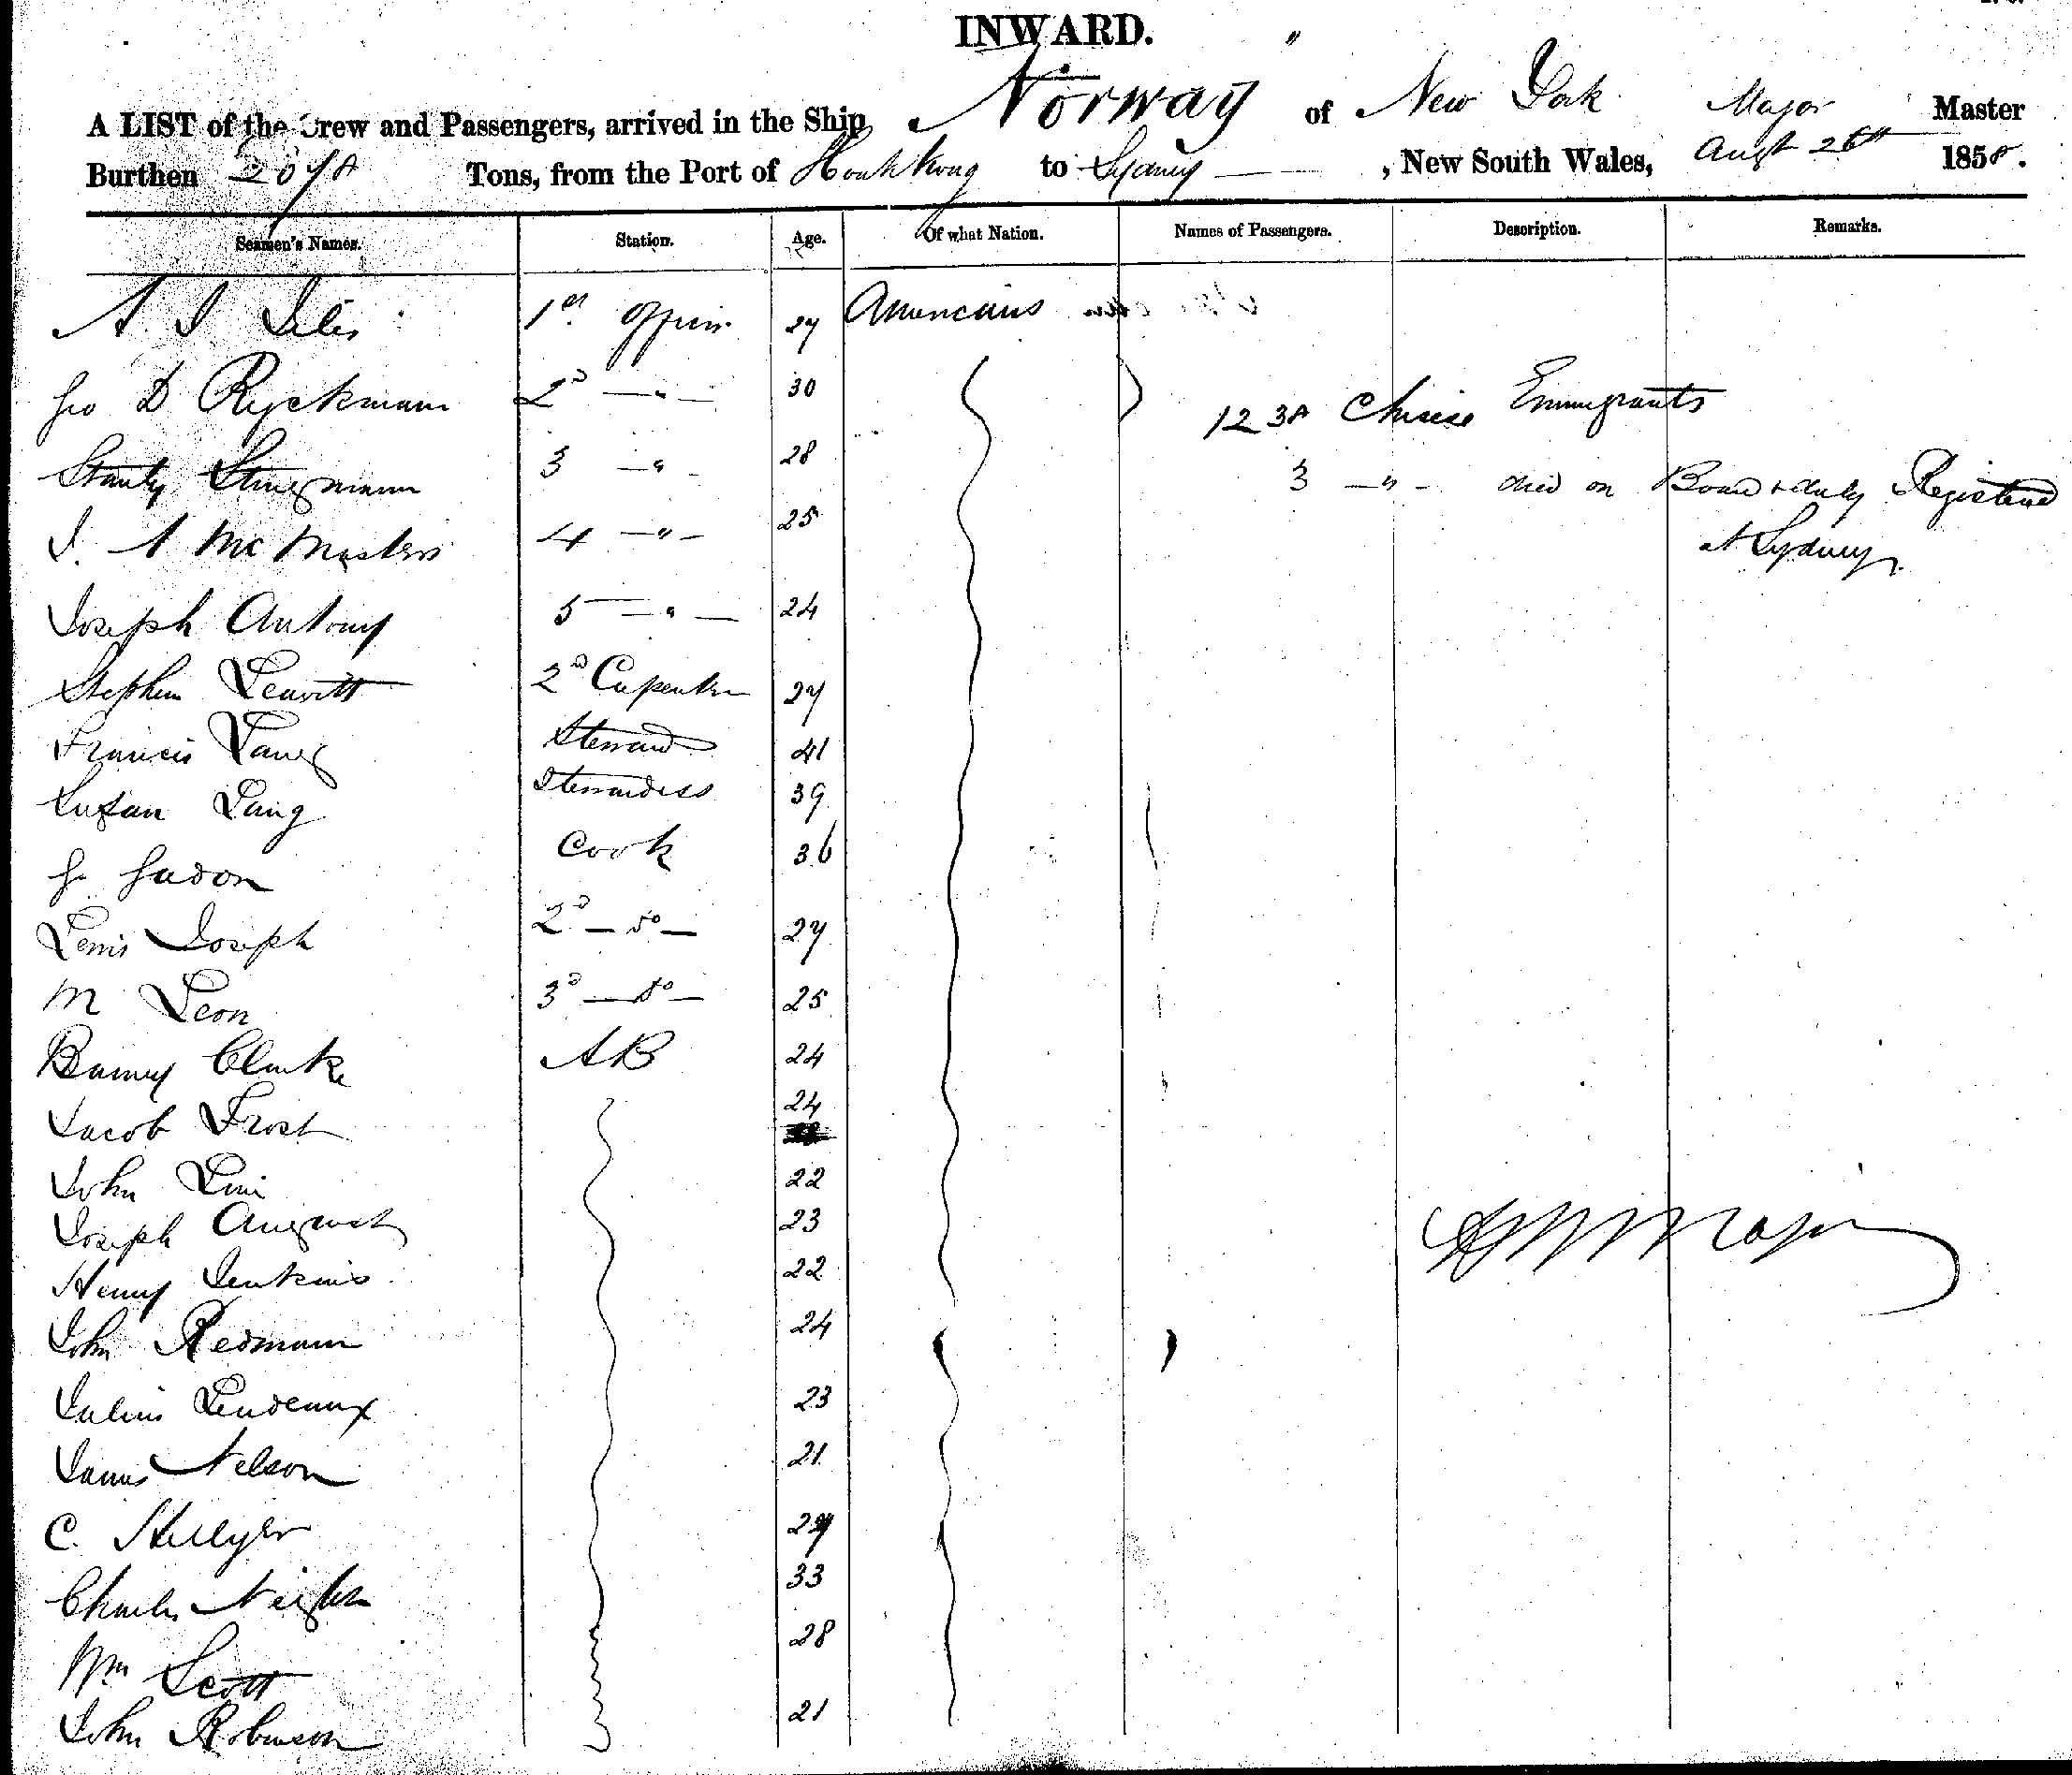 INWARD.
A LIST of the Crew and Passengers, arrived in the Ship Norway of New York Major Master
Burthen 2078 Tons, from the Port of Honk Kong to Sydney, New South Wales, Augt 26th 1858.
Seamen's Names. Station. Age. Of what Nation. Names of Passengers. Description. Remarks.
A. I 1st Officer 27 Americans
Geo D Ryckmann 2d —"— 30 1238 Chinese Emmigrants
Stanly 3 —"— 28 3 —"— died on Board & duly Registered
I. A McMasters 4 —"— 25 at Sydney
Joseph Antony 5 —"— 24
Stephen Leavitt 2d Carpenter 27
Francis Lang Steward 41
Susan Lang Stewardess 39
Cook 36
Lewis Joseph 2d — do — 27
M Leon 3d — do — 25
Barney Clarke AB 24
Jacob Frost 24
John 22
Joseph August 23
Henry Jenkins 22
John Redmann 24
Julius 23
James Nelson 21
C. Hellyer 29
Charles 33
Wm Scott 28
John Robinson 21
Major